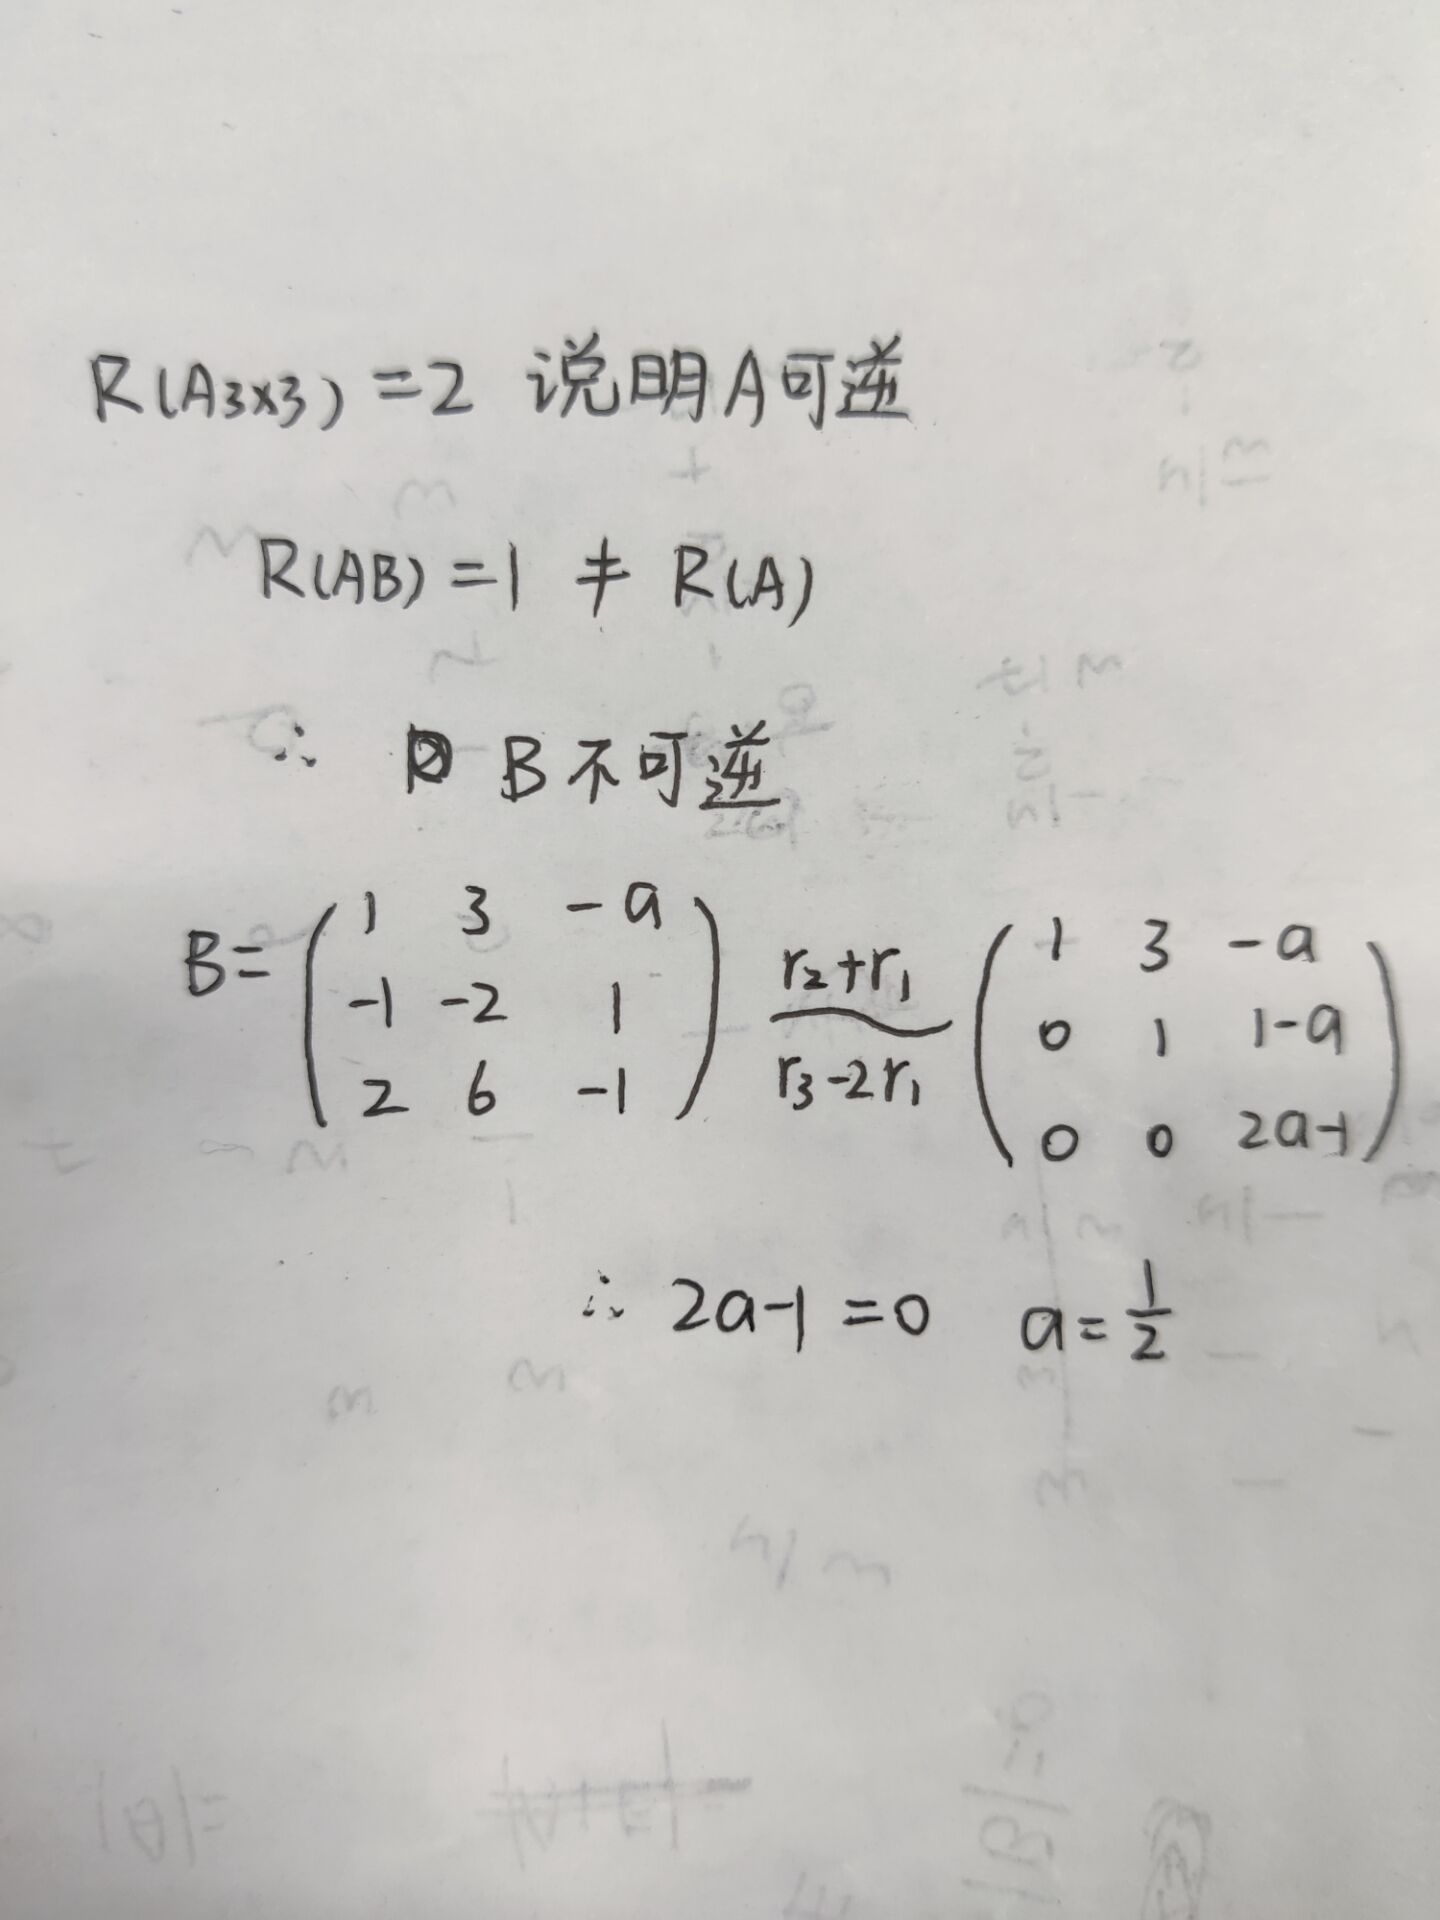 R(A3×3) =2 说明A可逆
R(AB) =1 ≠ R(A)
∴ B不可逆
B= (1 3 -a; -1 -2 1; 2 6 -1) r₂+r₁ r₃-2r₁ (1 3 -a; 0 1 1-a; 0 0 2a-1)
∴ 2a-1 =0 a=1/2